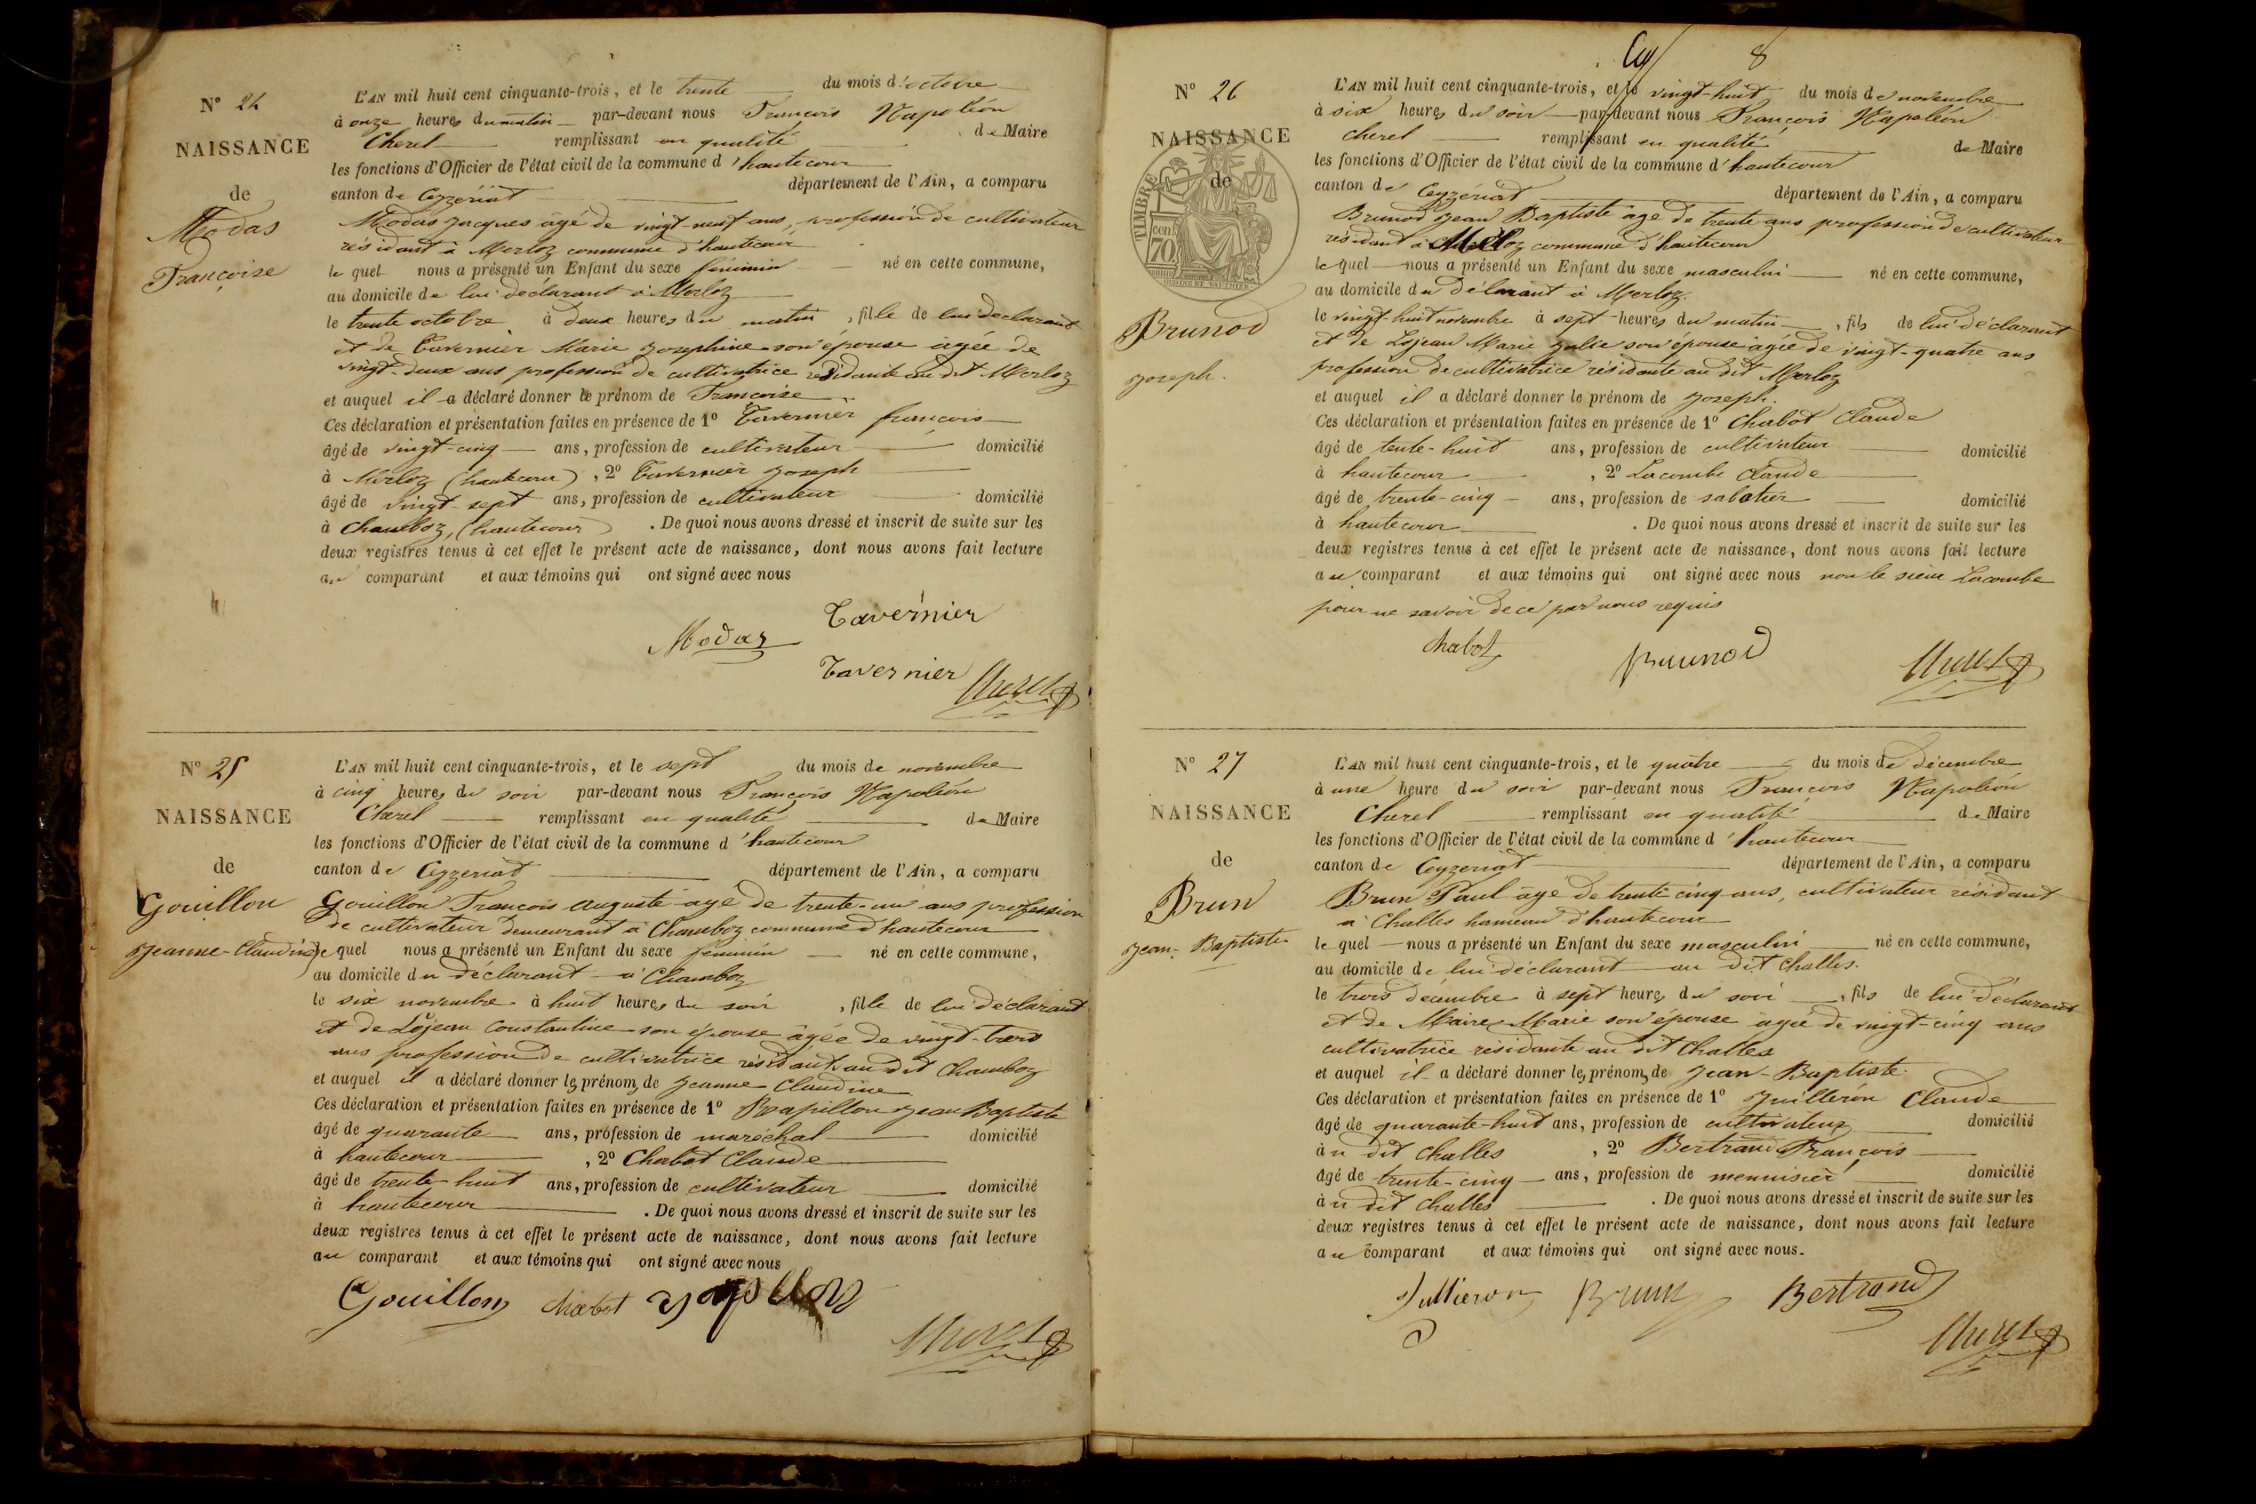 N° 24
NAISSANCE
de
Modas
Françoise
L'AN mil huit cent cinquante-trois, et le trente du mois d'octobre
à onze heures du matin par-devant nous François Napoléon
Cherel remplissant en qualité de Maire
les fonctions d'Officier de l'état civil de la commune d'hautecour
canton de Ceyzériat département de l'Ain, a comparu
Modas Jacques âgé de vingt neuf ans, profession de cultivateur
résidant à Merloz commune d'hautecour
le quel nous a présenté un Enfant du sexe féminin né en cette commune,
au domicile de lui déclarant à Merloz
le trente octobre à deux heures du matin, fille de lui déclarant
et de Tavernier Marie Josephine son épouse âgée de
vingt-deux ans profession de cultivatrice résidante au dit Merloz
et auquel il a déclaré donner le prénom de Françoise
Ces déclaration et présentation faites en présence de 1° Tavernier françois
âgé de vingt-cinq ans, profession de cultivateur domicilié
à Merloz (hautecour), 2° Tavernier Joseph
âgé de vingt-sept ans, profession de cultivateur domicilié
à Chamboz, (hautecour). De quoi nous avons dressé et inscrit de suite sur les
deux registres tenus à cet effet le présent acte de naissance, dont nous avons fait lecture
au comparant et aux témoins qui ont signé avec nous
Tavernier
Modas
Tavernier
Cherel
N° 25
NAISSANCE
de
Gouillon
Jeanne-Claudine
L'AN mil huit cent cinquante-trois, et le sept du mois de novembre
à cinq heures du soir par-devant nous François Napoléon
Cherel remplissant en qualité de Maire
les fonctions d'Officier de l'état civil de la commune d'hautecour
canton de Ceyzeriat département de l'Ain, a comparu
Gouillon François Auguste âgé de trente-un ans profession
de cultivateur demeurant à Chamboz commune d'hautecour
le quel nous a présenté un Enfant du sexe féminin né en cette commune,
au domicile du déclarant à Chamboz
le six novembre à huit heures du soir, fille de lui déclarant
et de Lojean Constantine son épouse âgée de vingt-trois
ans profession de cultivatrice résidant au dit Chamboz
et auquel il a déclaré donner les prénoms de Jeanne Claudine
Ces déclaration et présentation faites en présence de 1° Papillon Jean Baptiste
âgé de quarante ans, profession de maréchal domicilié
à hautecour, 2° Chabot Claude
âgé de trente-huit ans, profession de cultivateur domicilié
à hautecour. De quoi nous avons dressé et inscrit de suite sur les
deux registres tenus à cet effet le présent acte de naissance, dont nous avons fait lecture
au comparant et aux témoins qui ont signé avec nous
Gouillon Chabot
Cherel
8
N° 26
NAISSANCE
de
TIMBRE
70
Brunod
Joseph.
L'AN mil huit cent cinquante-trois, et le vingt-huit du mois de novembre
à six heures du soir par-devant nous François Napoléon
Cherel remplissant en qualité de Maire
les fonctions d'Officier de l'état civil de la commune d'hautecour
canton de Ceyzériat département de l'Ain, a comparu
Brunod Jean Baptiste âgé de trente ans profession de cultivateur
résidant à Merloz commune d'hautecour
le quel nous a présenté un Enfant du sexe masculin né en cette commune,
au domicile du déclarant à Merloz.
le vingt-huit novembre à sept heures du matin, fils de lui déclarant
et de Lojean Marie Julie son épouse âgée de vingt-quatre ans
profession de cultivatrice résidante au dit Merloz
et auquel il a déclaré donner le prénom de Joseph.
Ces déclaration et présentation faites en présence de 1° Chabot Claude
âgé de tente-huit ans, profession de cultivateur domicilié
à hautecour, 2° Lacombe Claude
âgé de trente-cinq ans, profession de sabotier domicilié
à hautecour. De quoi nous avons dressé et inscrit de suite sur les
deux registres tenus à cet effet le présent acte de naissance, dont nous avons fait lecture
au comparant et aux témoins qui ont signé avec nous non le sieur Lacombe
pour ne savoir de ce par nous requis
Chabot Brunod Cherel
N° 27
NAISSANCE
de
Brun
Jean-Baptiste
L'AN mil huit cent cinquante-trois, et le quatre du mois de décembre
à une heure du soir par-devant nous François Napoléon
Cherel remplissant en qualité de Maire
les fonctions d'Officier de l'état civil de la commune d'hautecour
canton de Ceyzeriat département de l'Ain, a comparu
Brun Paul âgé de trente cinq ans, cultivateur résidant
à Challes hameau d'hautecour
le quel nous a présenté un Enfant du sexe masculin né en cette commune,
au domicile de lui déclarant au dit Challes.
le trois décembre à sept heures du soir, fils de lui déclarant
et de Maire Marie son épouse âgée de vingt-cinq ans
cultivatrice résidante au dit Challes
et auquel il a déclaré donner les prénoms de Jean-Baptiste.
Ces déclaration et présentation faites en présence de 1° Juilleron Claude
âgé de quarante-huit ans, profession de cultivateur domicilié
à u dit Challes, 2° Bertrand François
âgé de trente-cinq ans, profession de menuisier domicilié
à u dit Challes. De quoi nous avons dressé et inscrit de suite sur les
deux registres tenus à cet effet le présent acte de naissance, dont nous avons fait lecture
au comparant et aux témoins qui ont signé avec nous.
Jullieron Brun Bertrand
Cherel